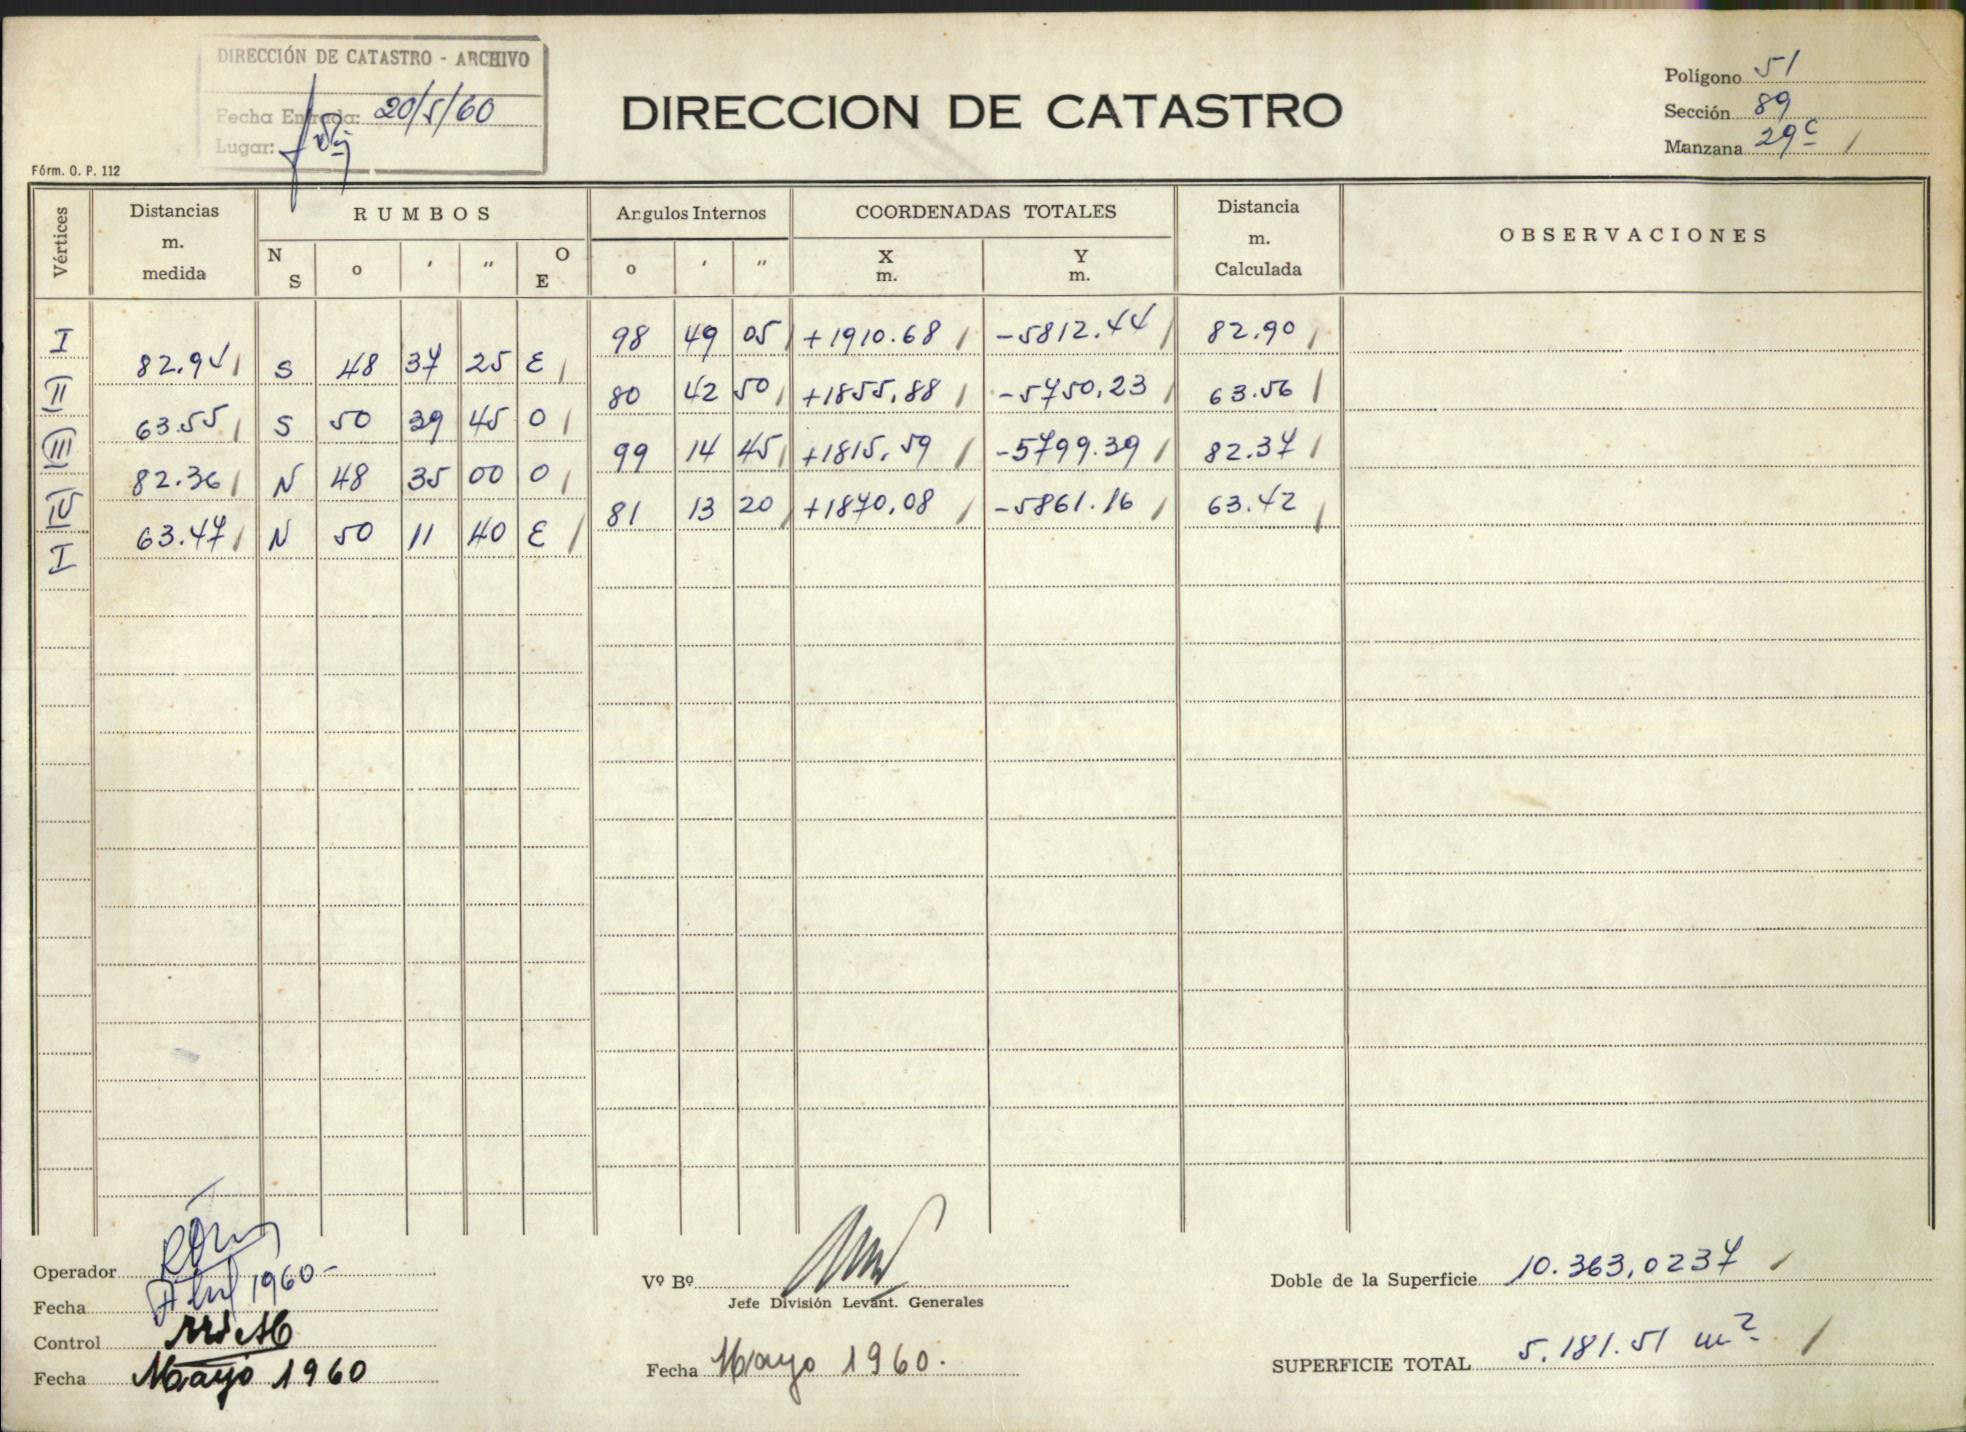 DIRECCIÓN DE CATASTRO - ARCHIVO
Fecha Entrada: 20/5/60
Lugar:
Fórm. O. P. 112
DIRECCION DE CATASTRO
Polígono 51
Sección 89
Manzana 29c
Vértices
Distancias m. medida
RUMBOS
N S o ' " O E
Angulos Internos
o ' "
COORDENADAS TOTALES
X m. Y m.
Distancia m. Calculada
OBSERVACIONES
I 98 49 05 +1910.68 -5812.44 82.90
82.94 S 48 37 25 E
II 80 42 50 +1855,88 -5750,23 63.56
63.55 S 50 39 45 O
III 99 14 45 +1815,59 -5799.39 82.37
82.36 N 48 35 00 O
IV 81 13 20 +1870,08 -5861.16 63.42
63.47 N 50 11 40 E
I
Operador
Fecha Abril 1960-
Control
Fecha Mayo 1960
Vº Bº
Jefe División Levant. Generales
Fecha Mayo 1960.
Doble de la Superficie 10.363,0237
SUPERFICIE TOTAL 5.181.51 m2